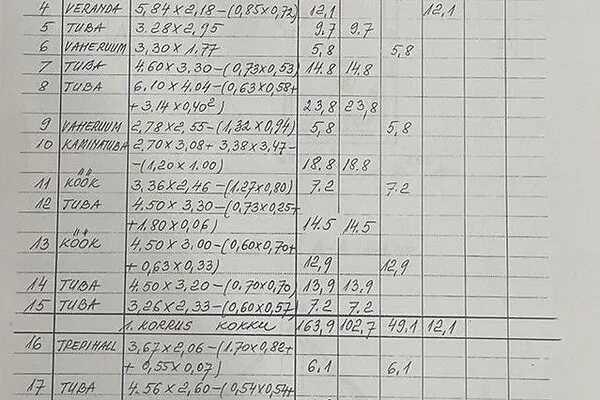 4 VERANDA 5,84×2,18-(0,85×0,72) 12,1 12,1
5 TUBA 3.28×2,95 9.7 9.7
6 VAHERUUM 3,30×1.77 5,8 5,8
7 TUBA 4.60×3.30-(0,73×0,53) 14.8 14,8
8 TUBA 6.10×4.04-(0,63×0,58+
+3,14×0,40²) 23,8 23,8
9 VAHERUUM 2,78×2,55-(1,32×0,94) 5,8 5,8
10 KAMINATUBA 2,70×3,08+3,38×3,47-
-(1,20×1.00) 18.8 18.8
11 KÖÖK 3,36×2,46-(1.27×0,80) 7.2 7.2
12 TUBA 4.50×3,30-(0,73×0,25+
+1.80×0,06) 14.5 14.5
13 KÖÖK 4.50×3,00-(0,60×0,70+
+0,63×0,33) 12,9 12,9
14 TUBA 4.50×3,20-(0.70×0,70) 13,9 13,9
15 TUBA 3,26×2,33-(0,60×0,57) 7.2 7.2
1. KORRUS KOKKU 163,9 102,7 49,1 12,1
16 TREPIHALL 3,67×2,06-(1.70×0,82+
+0,55×0,07) 6,1 6,1
17 TUBA 4.56×2,60-(0,54×0,54+